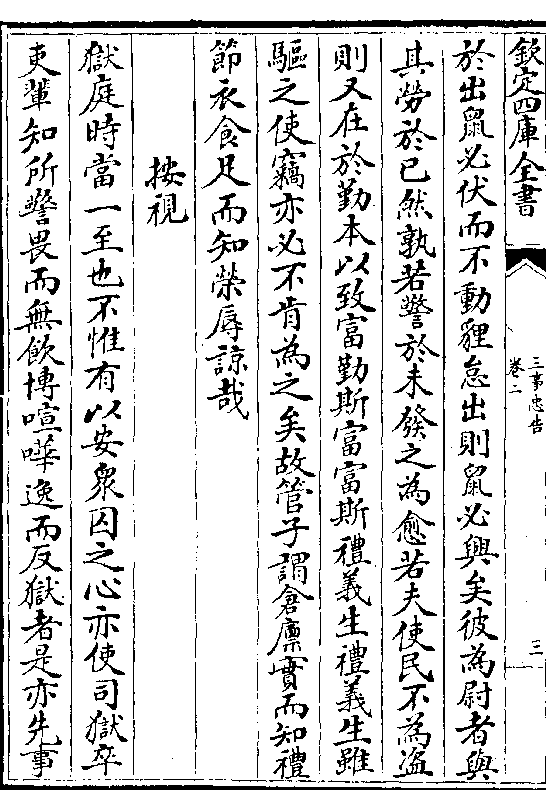 欽定四庫全書
三事忠告
卷二
三
於出鼠必伏而不動貍怠出則鼠必興矣彼為尉者與
其勞於已然孰若警於未發之為愈若夫使民不為盜
則又在於勤本以致富勤斯富富斯禮義生禮義生雖
驅之使竊亦必不肯為之矣故管子謂倉廩實而知禮
節衣食足而知榮辱諒哉
按視
獄庭時當一至也不惟有以安衆囚之心亦使司獄卒
吏輩知所警畏而無飲博喧嘩逸而反獄者是亦先事